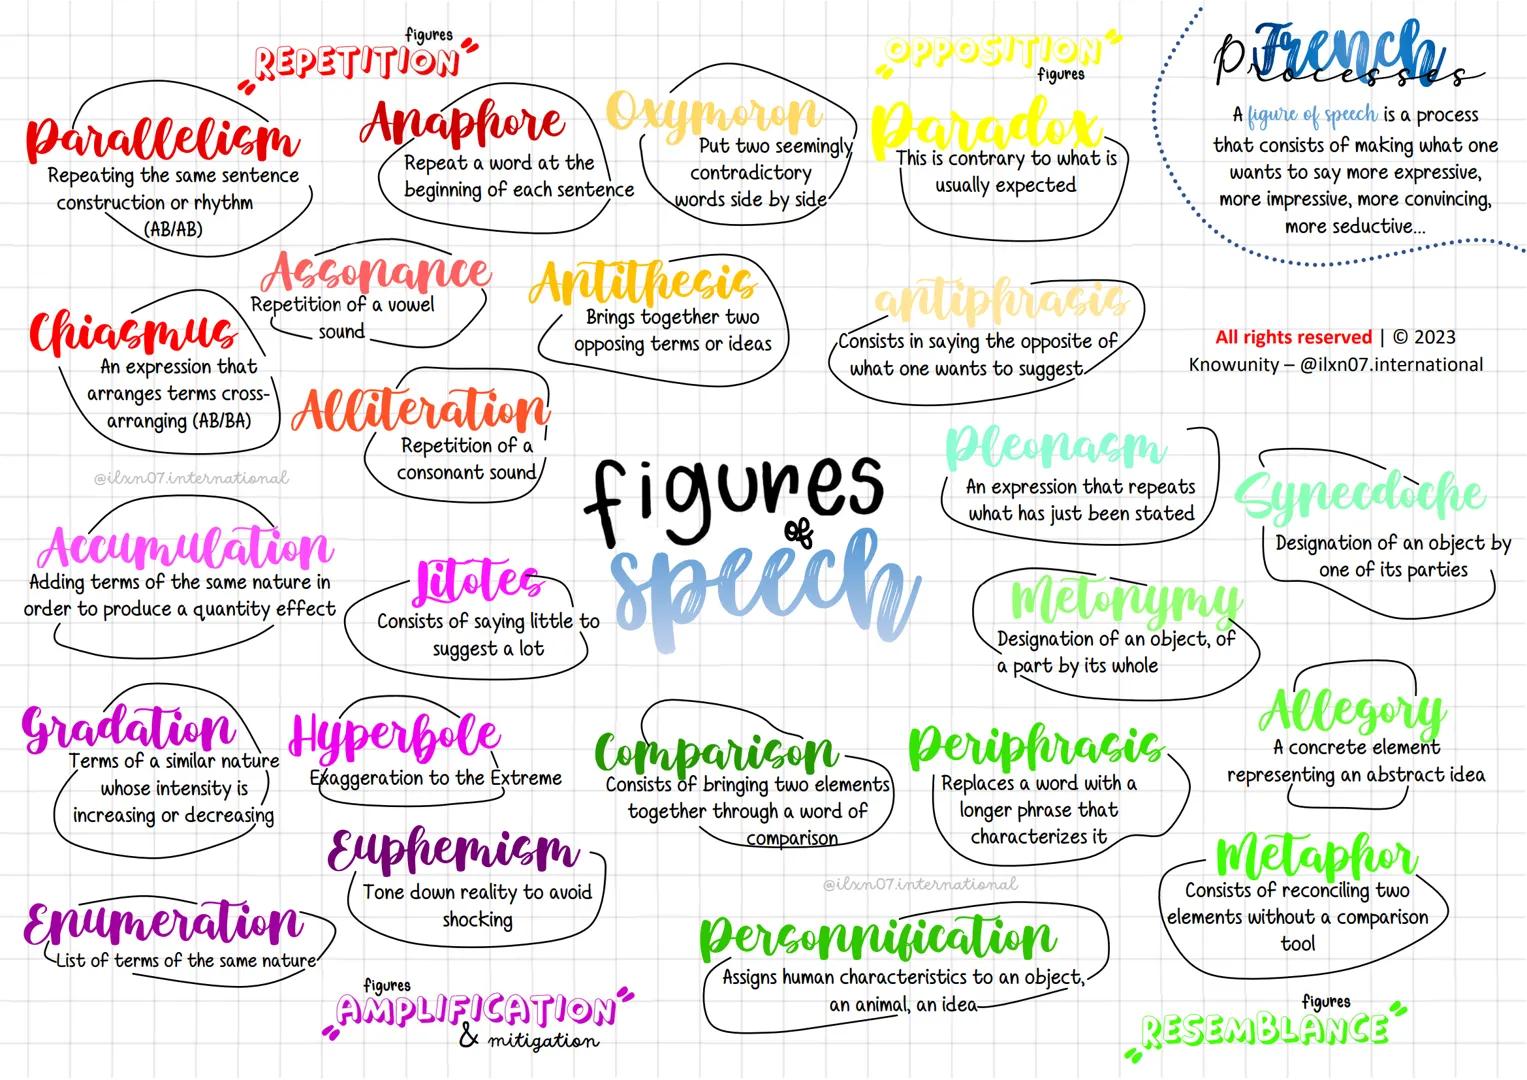 figures
REPETITION
Parallelism
Repeating the same sentence
construction or rhythm
(AB/AB)
Anaphore
Repeat a word at the
beginning of each sentence
Assonance
Repetition of a vowel
sound
Chiasmus
An expression that
arranges terms cross-
arranging (AB/BA)
Alliteration
Repetition of a
consonant sound
@ilxn07.international
OPPOSITION
figures
Oxymoron
Put two seemingly
contradictory
words side by side
Paradox
This is contrary to what is
usually expected
Antithesis
Brings together two
opposing terms or ideas
antiphrasis
Consists in saying the opposite of
what one wants to suggest
French
Processes
A figure of speech is a process
that consists of making what one
wants to say more expressive,
more impressive, more convincing,
more seductive...
All rights reserved | © 2023
Knowunity – @ilxn07.international
figures
of
speech
Accumulation
Adding terms of the same nature in
order to produce a quantity effect
Litotes
Consists of saying little to
suggest a lot
Gradation
Terms of a similar nature
whose intensity is
increasing or decreasing
Hyperbole
Exaggeration to the Extreme
Euphemism
Tone down reality to avoid
shocking
Enumeration
List of terms of the same nature
figures
AMPLIFICATION
& mitigation
Pleonasm
An expression that repeats
what has just been stated
Synecdoche
Designation of an object by
one of its parties
Metonymy
Designation of an object, of
a part by its whole
Allegory
A concrete element
representing an abstract idea
Comparison
Consists of bringing two elements
together through a word of
comparison
Periphrasis
Replaces a word with a
longer phrase that
characterizes it
Metaphor
Consists of reconciling two
elements without a comparison
tool
@ilxn07.international
Personnification
Assigns human characteristics to an object,
an animal, an idea
figures
RESEMBLANCE